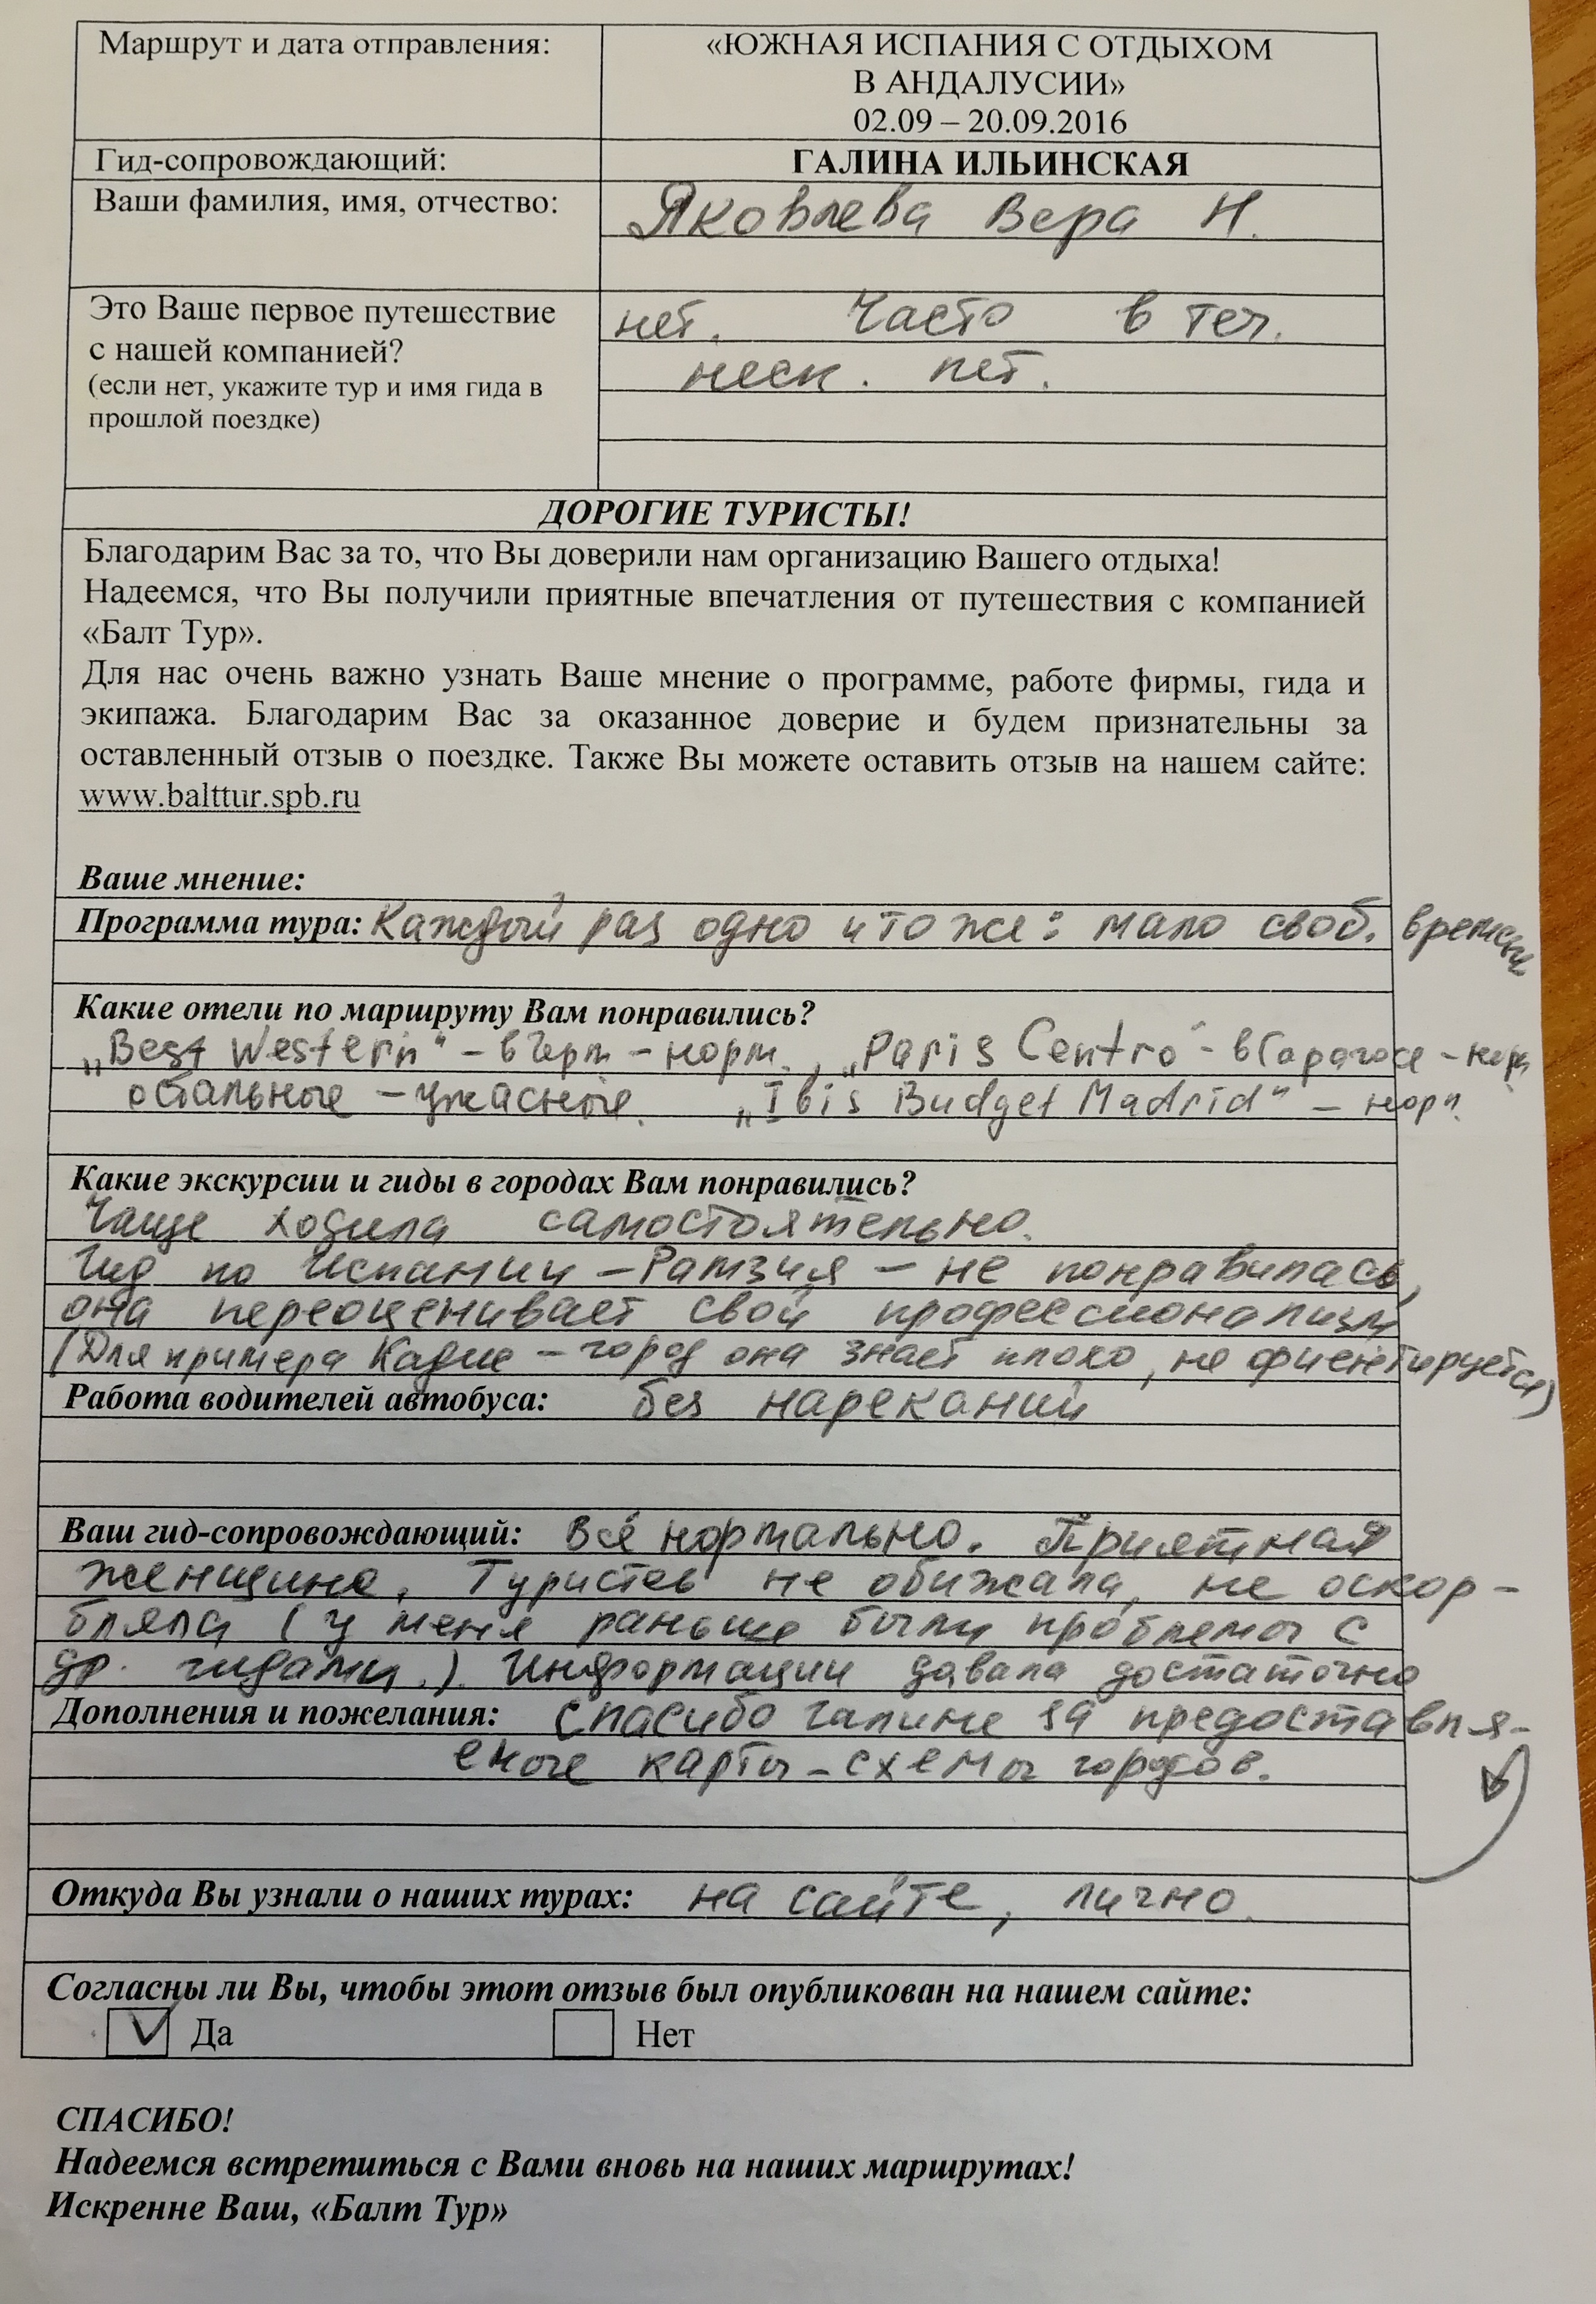 Маршрут и дата отправления:
«ЮЖНАЯ ИСПАНИЯ С ОТДЫХОМ
В АНДАЛУСИИ»
02.09 – 20.09.2016
Гид-сопровождающий:
ГАЛИНА ИЛЬИНСКАЯ
Ваши фамилия, имя, отчество:
Яковлева Вера Н.
Это Ваше первое путешествие
с нашей компанией?
(если нет, укажите тур и имя гида в
прошлой поездке)
нет. Часто в теч.
неск. лет.
ДОРОГИЕ ТУРИСТЫ!
Благодарим Вас за то, что Вы доверили нам организацию Вашего отдыха!
Надеемся, что Вы получили приятные впечатления от путешествия с компанией
«Балт Тур».
Для нас очень важно узнать Ваше мнение о программе, работе фирмы, гида и
экипажа. Благодарим Вас за оказанное доверие и будем признательны за
оставленный отзыв о поездке. Также Вы можете оставить отзыв на нашем сайте:
www.balttur.spb.ru
Ваше мнение:
Программа тура: Каждый раз одно и то же: мало своб. времени
Какие отели по маршруту Вам понравились?
„Best Western" – в Герм – норм., „Paris Centro" – в Сарагосе – норм
остальные – ужасные. „Ibis Budget Madrid" – норм.
Какие экскурсии и гиды в городах Вам понравились?
Чаще ходила самостоятельно.
Гид по Испании – Рамзия – не понравилась,
она переоценивает свой профессионализм
(Для примера Кадис – город она знает плохо, не ориентируется)
Работа водителей автобуса: без нареканий
Ваш гид-сопровождающий: Всё нормально. Приятная
женщина. Туристов не обижала, не оскор-
бляла (у меня раньше были проблемы с
др. гидами.). Информации давала достаточно
Дополнения и пожелания: спасибо Галине за предоставля-
емые карты-схемы городов.
Откуда Вы узнали о наших турах: на сайте, лично.
Согласны ли Вы, чтобы этот отзыв был опубликован на нашем сайте:
V Да Нет
СПАСИБО!
Надеемся встретиться с Вами вновь на наших маршрутах!
Искренне Ваш, «Балт Тур»